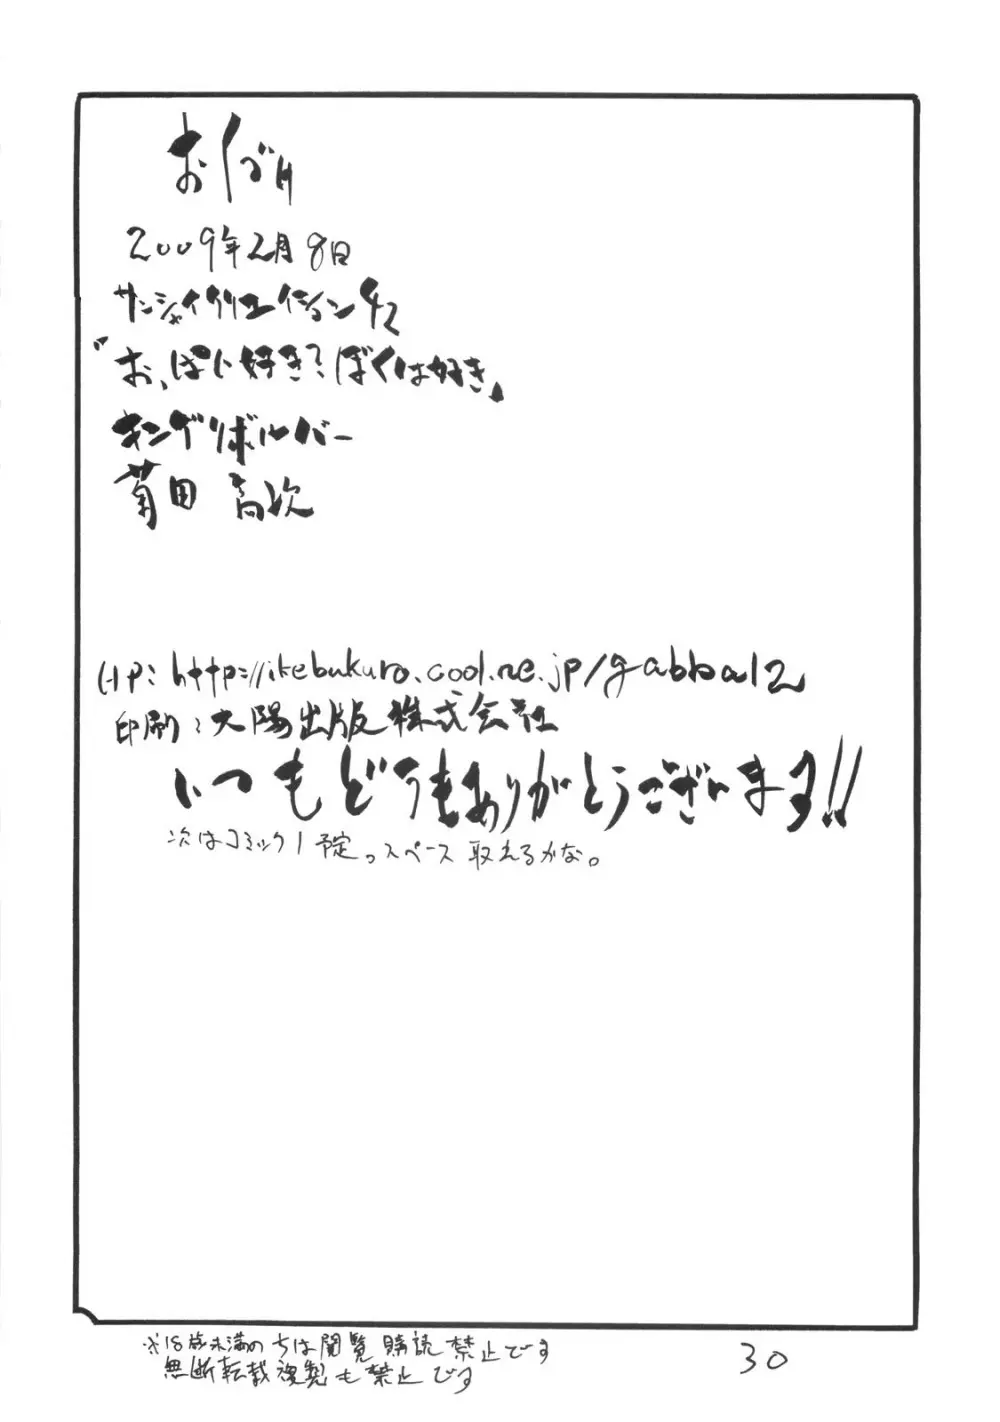 おくづけ
2009年2月8日
サンシャインクリエイション42
「おっぱい好き?ぼくは好き」
キングリボルバー
菊田高次
HP:http://ikebukuro.cool.ne.jp/gabba12
印刷:大陽出版株式会社
いつもどうもありがとうございます!!
次はコミック1予定。スペース取れるかな。
※18歳未満の方は閲覧購読禁止です
無断転載複製も禁止です
30